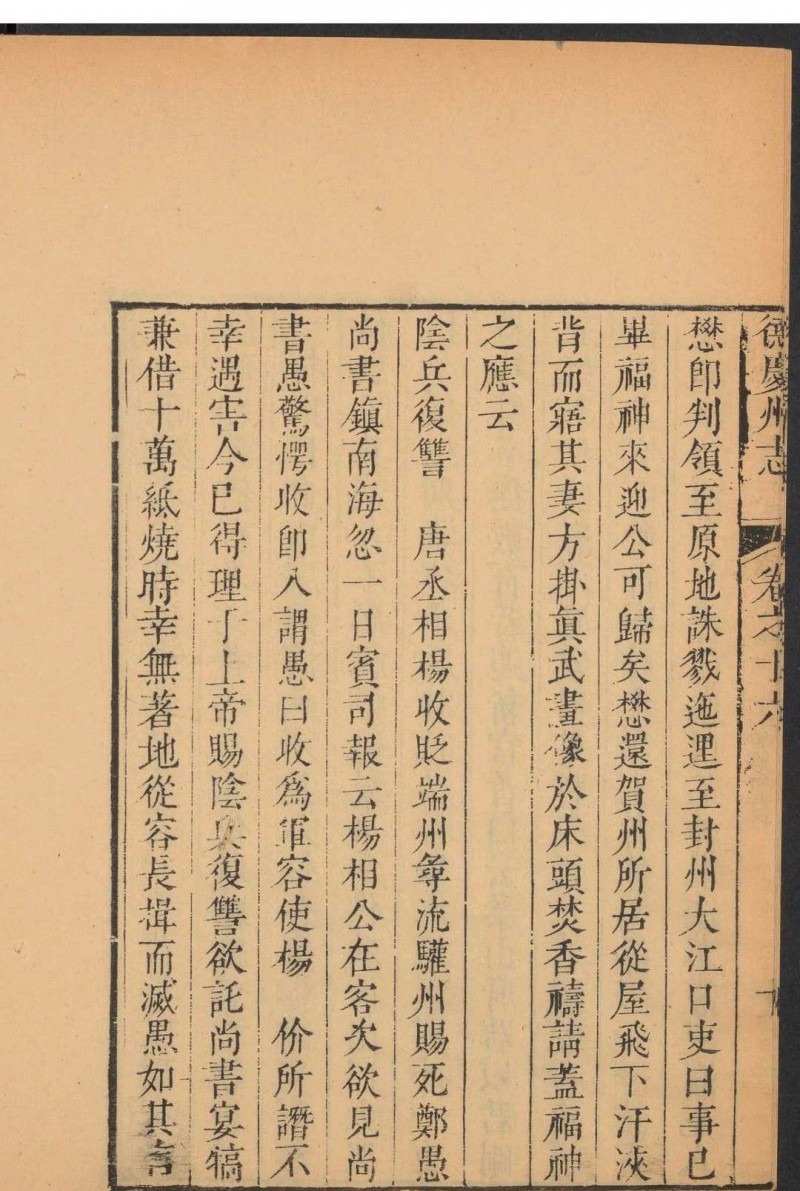 德慶州志　卷之十六
懋即判領至原地誅戮迤逦至封州大江口吏曰事已
畢福神來迎公可歸矣懋還賀州所居從屋飛下汗浹
背而寤其妻方掛真武畫像於床頭焚香禱請蓋福神
之應云
陰兵復讐　唐丞相楊收貶端州尋流驩州賜死鄭愚
尚書鎮南海忽一日賓司報云楊相公在客次欲見尚
書愚驚愕收即入謂愚曰收為軍容使楊　价所譖不
幸遇害今已得理于上帝賜陰兵復讐欲託尚書宴犒
兼借十萬紙燒時幸無著地從容長揖而滅愚如其言